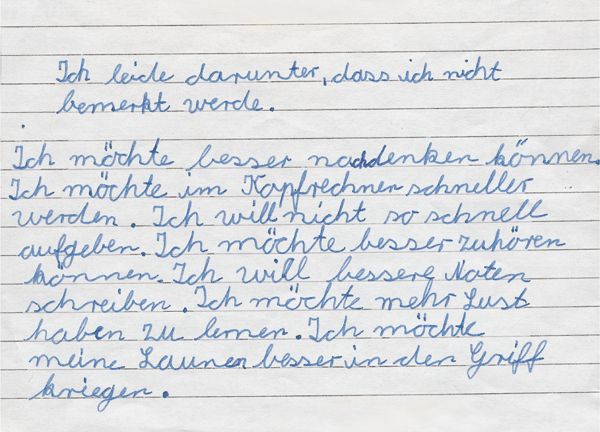 Ich leide darunter, dass ich nicht
bemerkt werde.
Ich möchte besser nachdenken können.
Ich möchte im Kopfrechnen schneller
werden. Ich will nicht so schnell
aufgeben. Ich möchte besser zuhören
können. Ich will bessere Noten
schreiben. Ich möchte mehr Lust
haben zu lernen. Ich möchte
meine Launen besser in den Griff
kriegen.